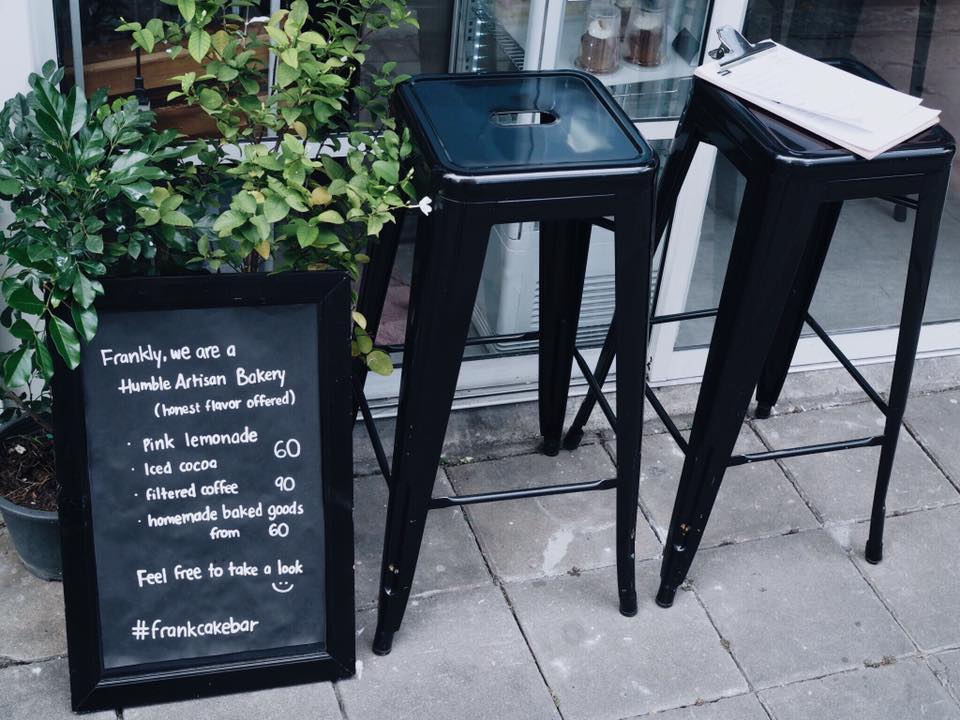 Frankly, we are a
Humble Artisan Bakery
(honest flavor offered)
· Pink lemonade
· Iced cocoa 60
· filtered coffee 90
· homemade baked goods
from 60
Feel free to take a look
#frankcakebar